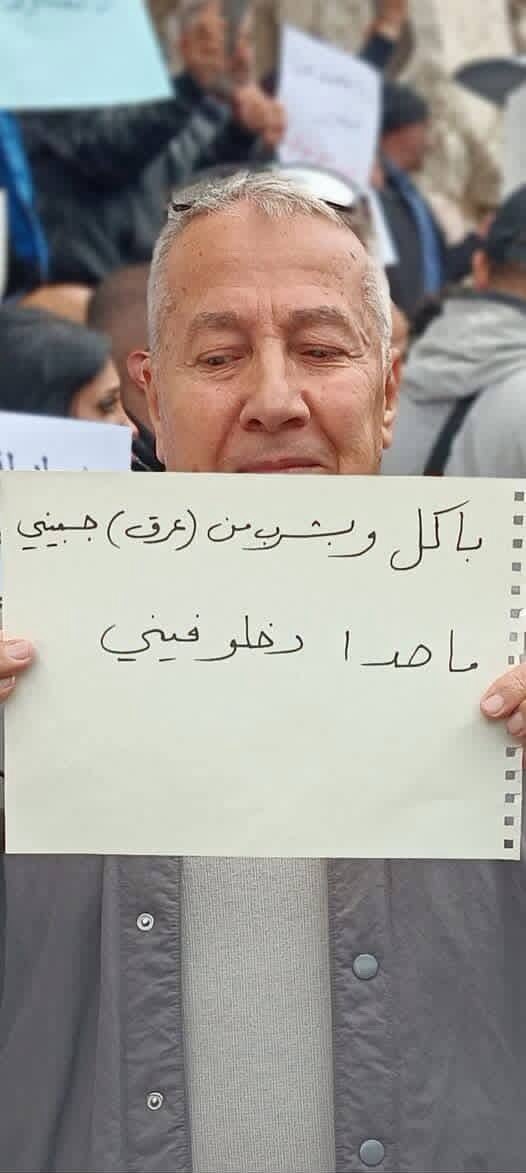 باكل وبشرب من (عرق) جبيني
ما حدا دخلو فيني